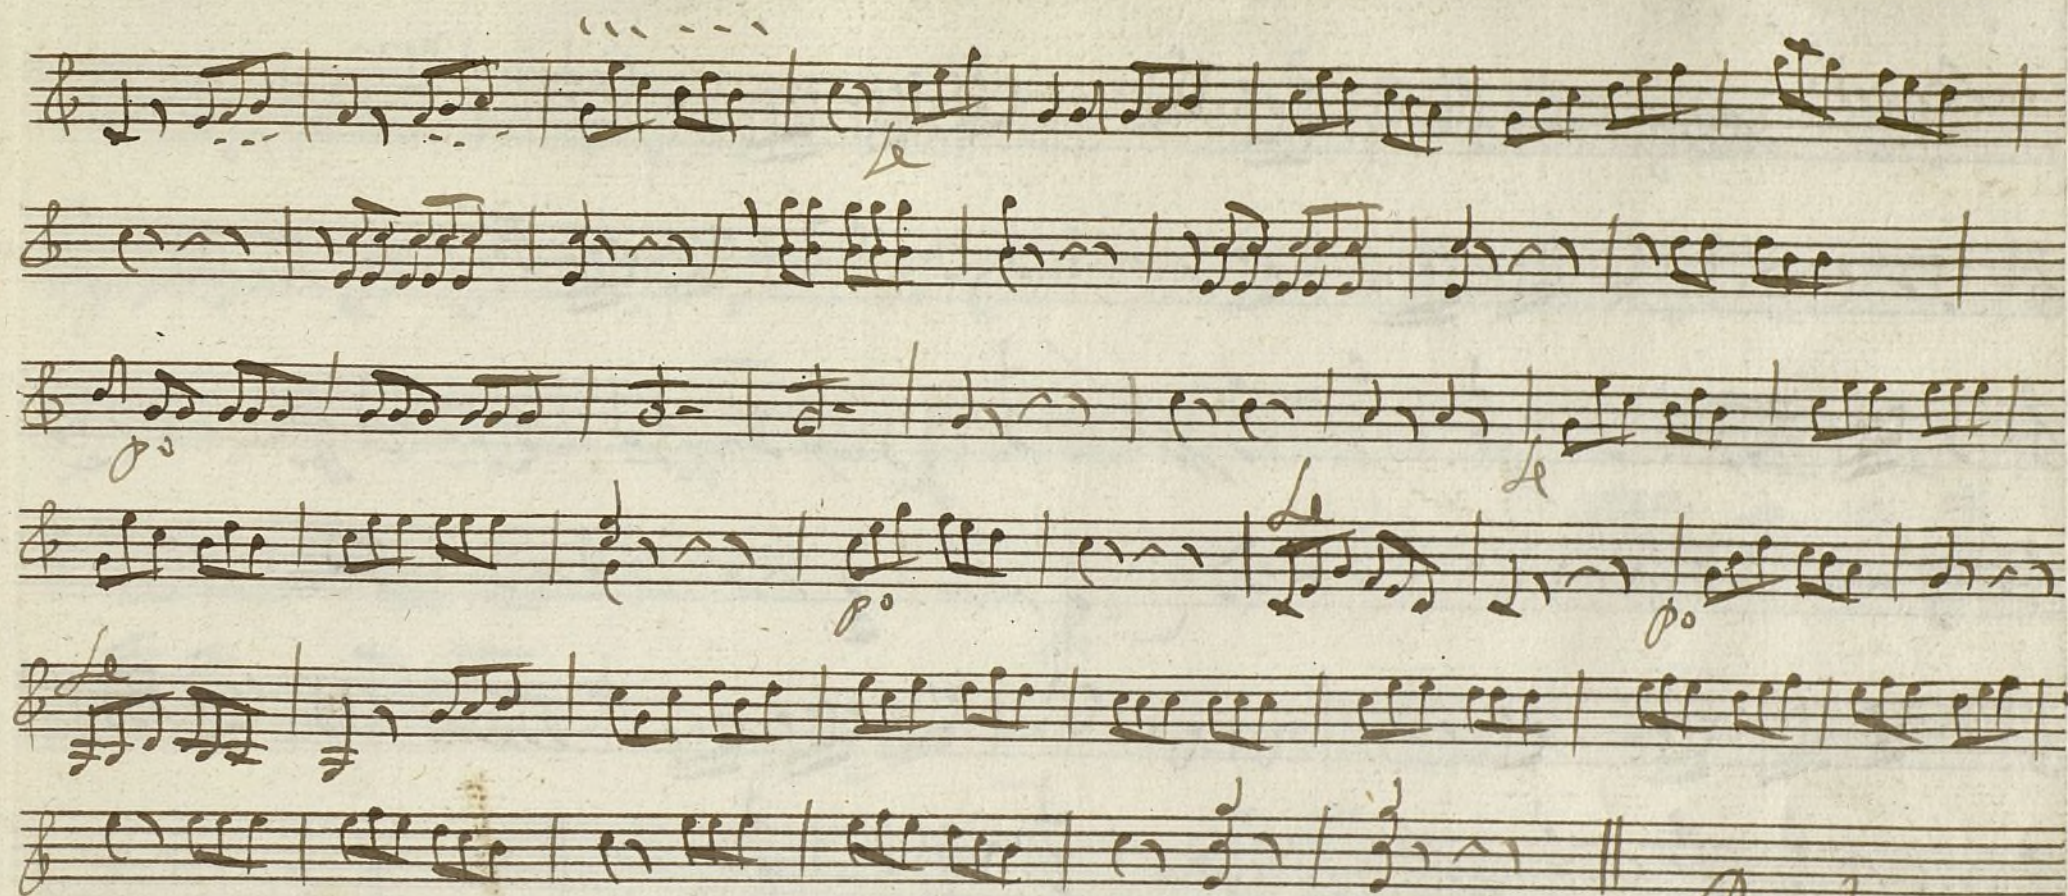 fe
po
fe
fe
po
po
fe